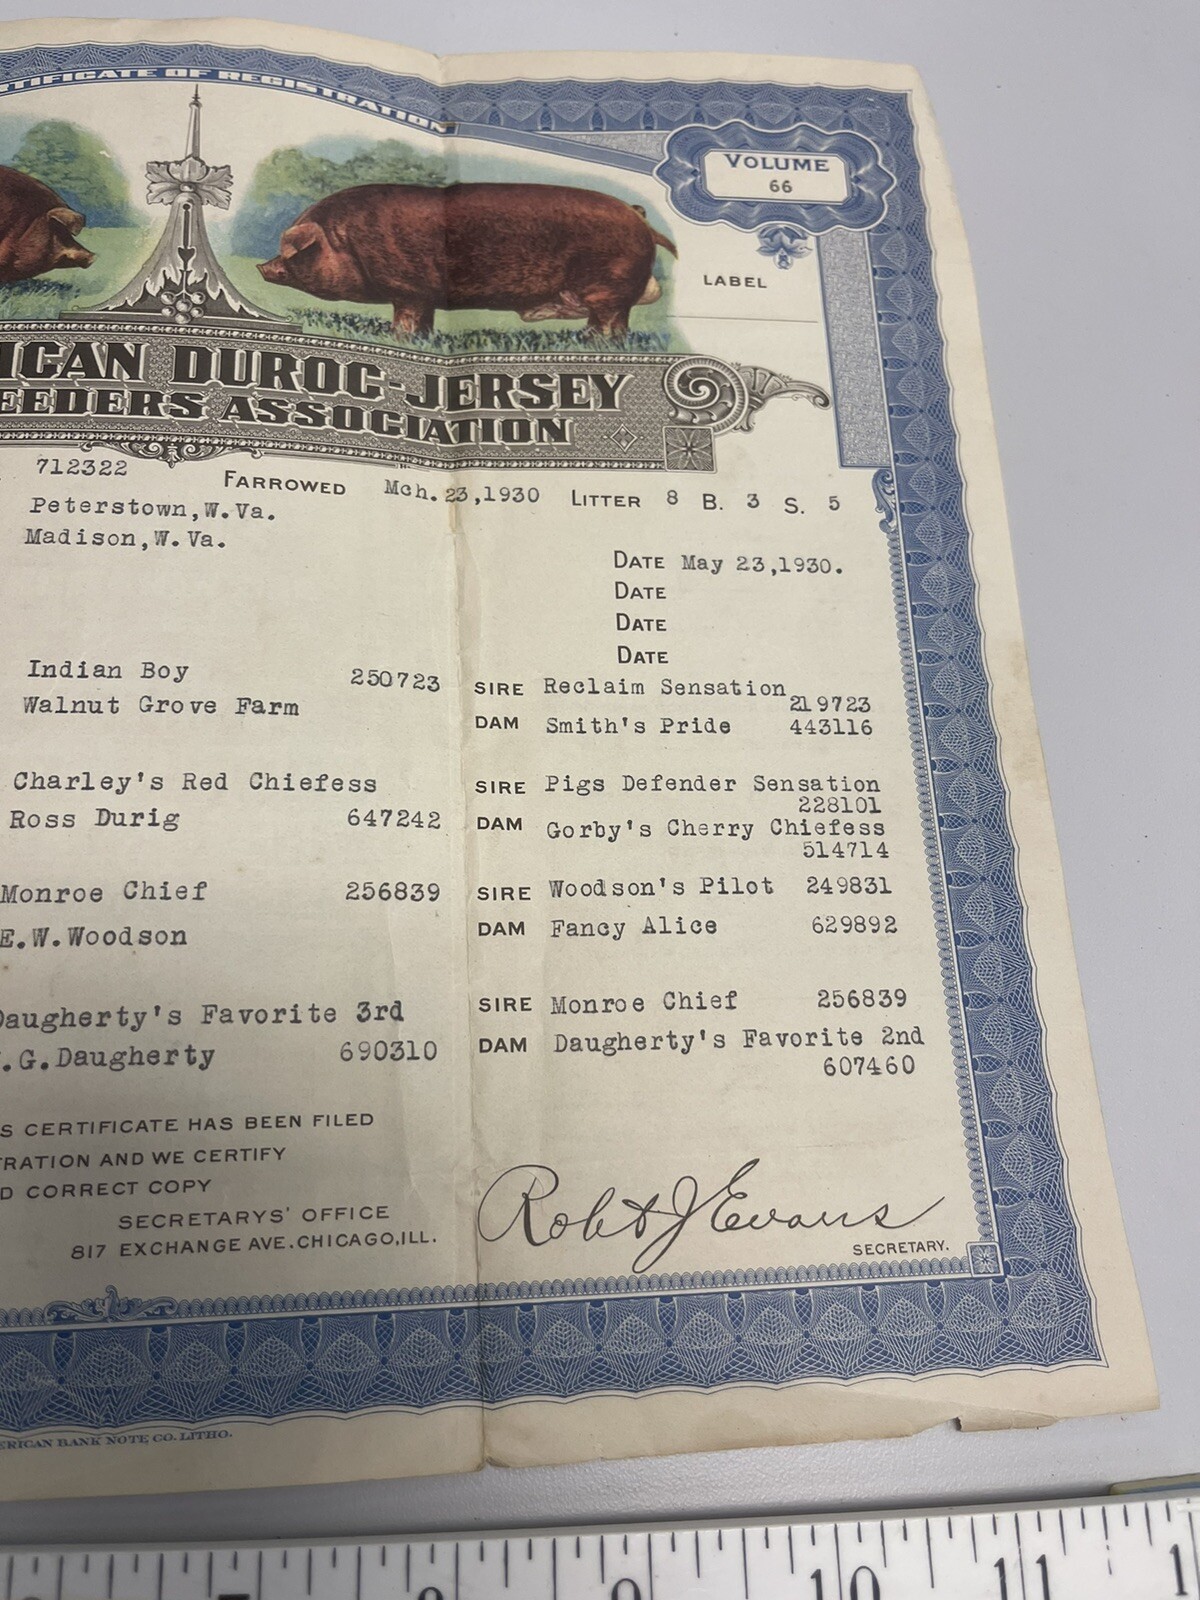 CERTIFICATE OF REGISTRATION
VOLUME
66
LABEL
ICAN DUROC-JERSEY
EEDERS ASSOCIATION
712322 FARROWED Mch. 23,1930 LITTER 8 B. 3 S. 5
Peterstown,W.Va.
Madison,W.Va.
DATE May 23,1930.
DATE
DATE
DATE
Indian Boy 250723 SIRE Reclaim Sensation
219723
Walnut Grove Farm DAM Smith's Pride 443116
Charley's Red Chiefess SIRE Pigs Defender Sensation
228101
Ross Durig 647242 DAM Gorby's Cherry Chiefess
514714
Monroe Chief 256839 SIRE Woodson's Pilot 249831
E.W.Woodson DAM Fancy Alice 629892
Daugherty's Favorite 3rd SIRE Monroe Chief 256839
.G.Daugherty 690310 DAM Daugherty's Favorite 2nd
607460
S CERTIFICATE HAS BEEN FILED
TRATION AND WE CERTIFY
D CORRECT COPY
SECRETARYS' OFFICE
817 EXCHANGE AVE. CHICAGO, ILL.
Robt J Evans
SECRETARY.
ERICAN BANK NOTE CO. LITHO.
7 8 9 10 11